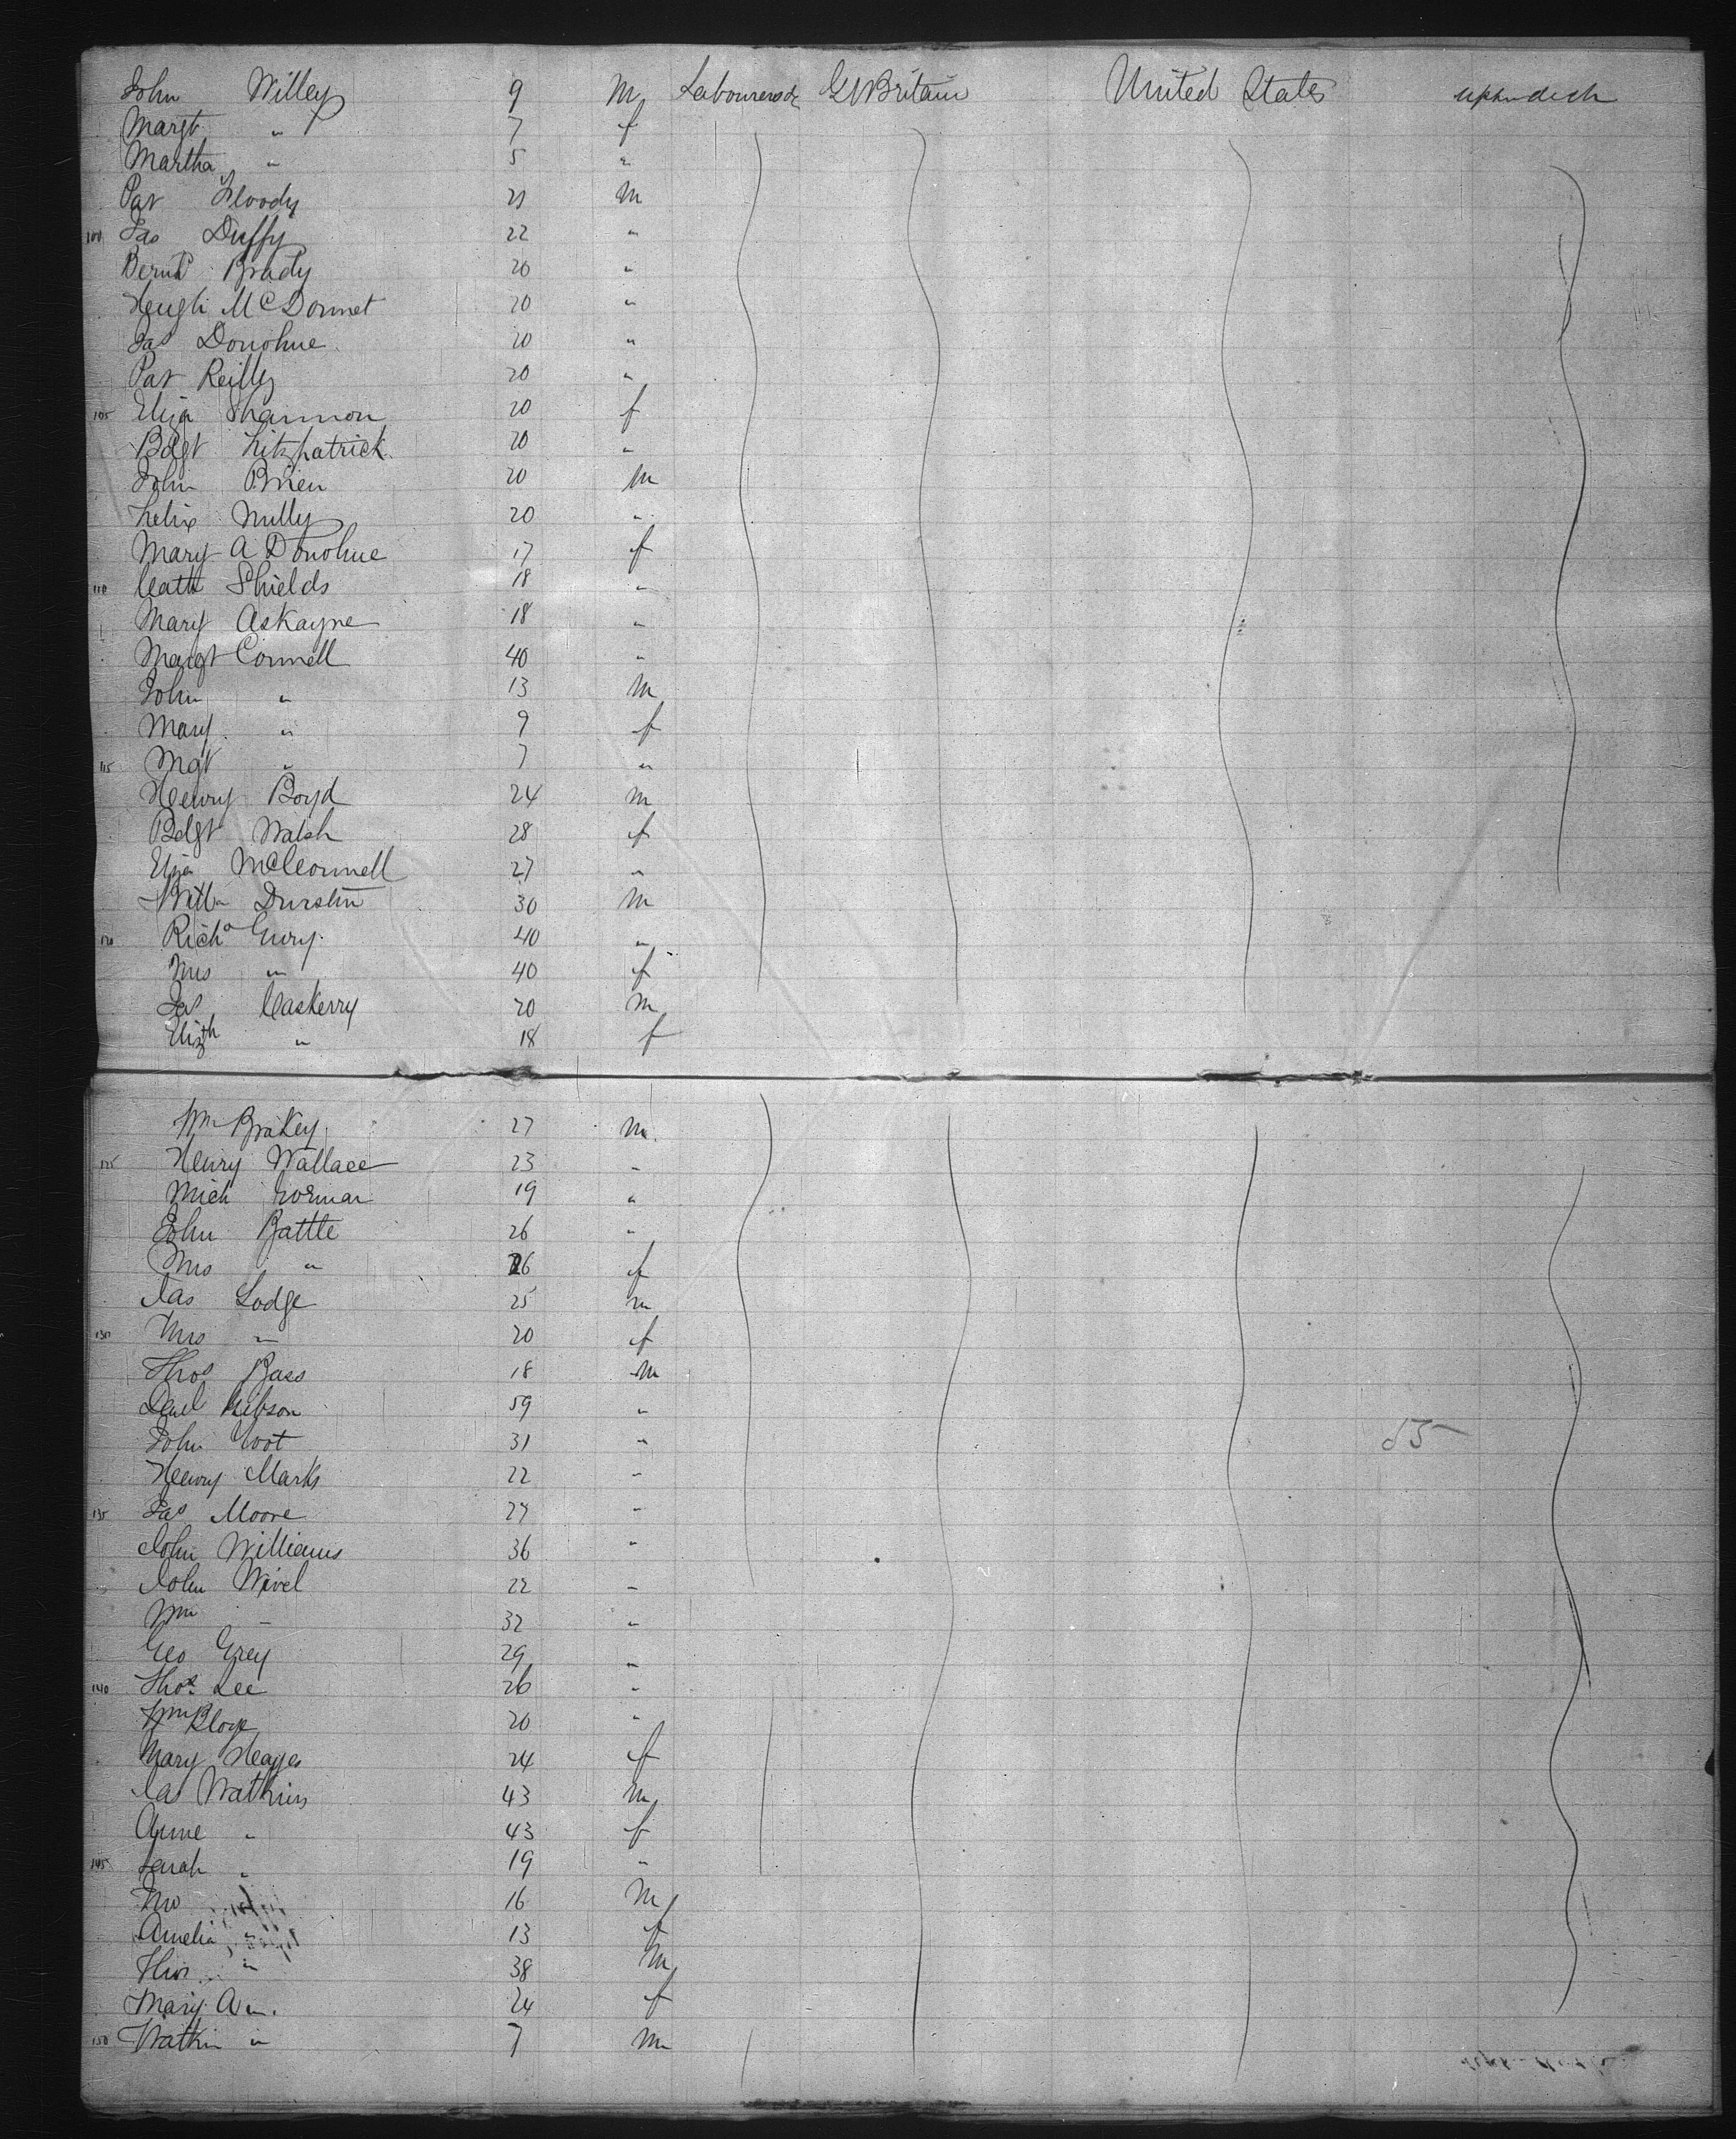 John Willey 9 M Labourers &c Gt Britain United States upper deck
Margt " 7 f
Martha " 5 "
Pat Floody 21 M
100 Jas Duffy 22 "
Bernd Brady 20 "
Hugh McDonnet 20 "
Jas Donohue 20 "
Pat Reilly 20 "
105 Eliza Shannon 20 f
Bdgt Fitzpatrick 20 "
John Brien 20 M
Felix Nully 20 "
Mary A Donohue 17 f
110 Cath Shields 18 "
Mary Askayne 18 "
Margt Connell 40 "
John " 13 M
Mary " 9 f
115 Mgt " 7 "
Henry Boyd 24 M
Bdgt Walsh 28 f
Eliza McConnell 27 "
Willm Durstin 30 M
120 Richd Gury 40 "
Mrs " 40 f
Jas Caskerry 20 M
Elizth " 18 f
Wm Brakey 27 M
125 Henry Wallace 23 "
Mich Gorman 19 "
John Battle 26 "
Mrs " 26 f
Jas Lodge 25 M
130 Mrs " 20 f
Thos Bass 18 M
Danl Gibson 59 "
John Yoot 31 "
Henry Marks 22 "
85
135 Jas Moore 27 "
John Williams 36 "
John Wivel 22 "
Wm " 32 "
Geo Grey 29 "
140 Thos Lee 26 "
Wm Bloye 20 "
Mary Heayes 24 f
Jas Watkins 43 M
Anne " 43 f
145 Sarah " 19 "
Jno 16 M
Amelia " 13 f
Thos " 38 M
Mary A " 24 f
150 Watkin " 7 M